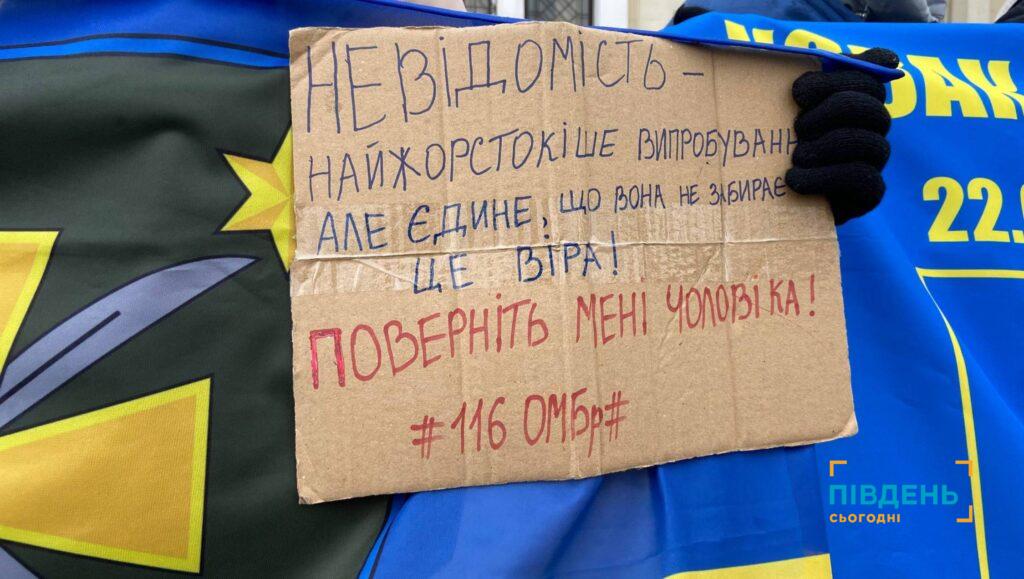 НЕВІДОМІСТЬ –
НАЙЖОРСТОКІШЕ ВИПРОБУВАНН
АЛЕ ЄДИНЕ, ЩО ВОНА НЕ ЗАБИРАЄ
ЦЕ ВІРА!
ПОВЕРНІТЬ МЕНІ ЧОЛОВІКА!
#116 ОМБр#
22.
ПІВДЕНЬ
СЬОГОДНІ